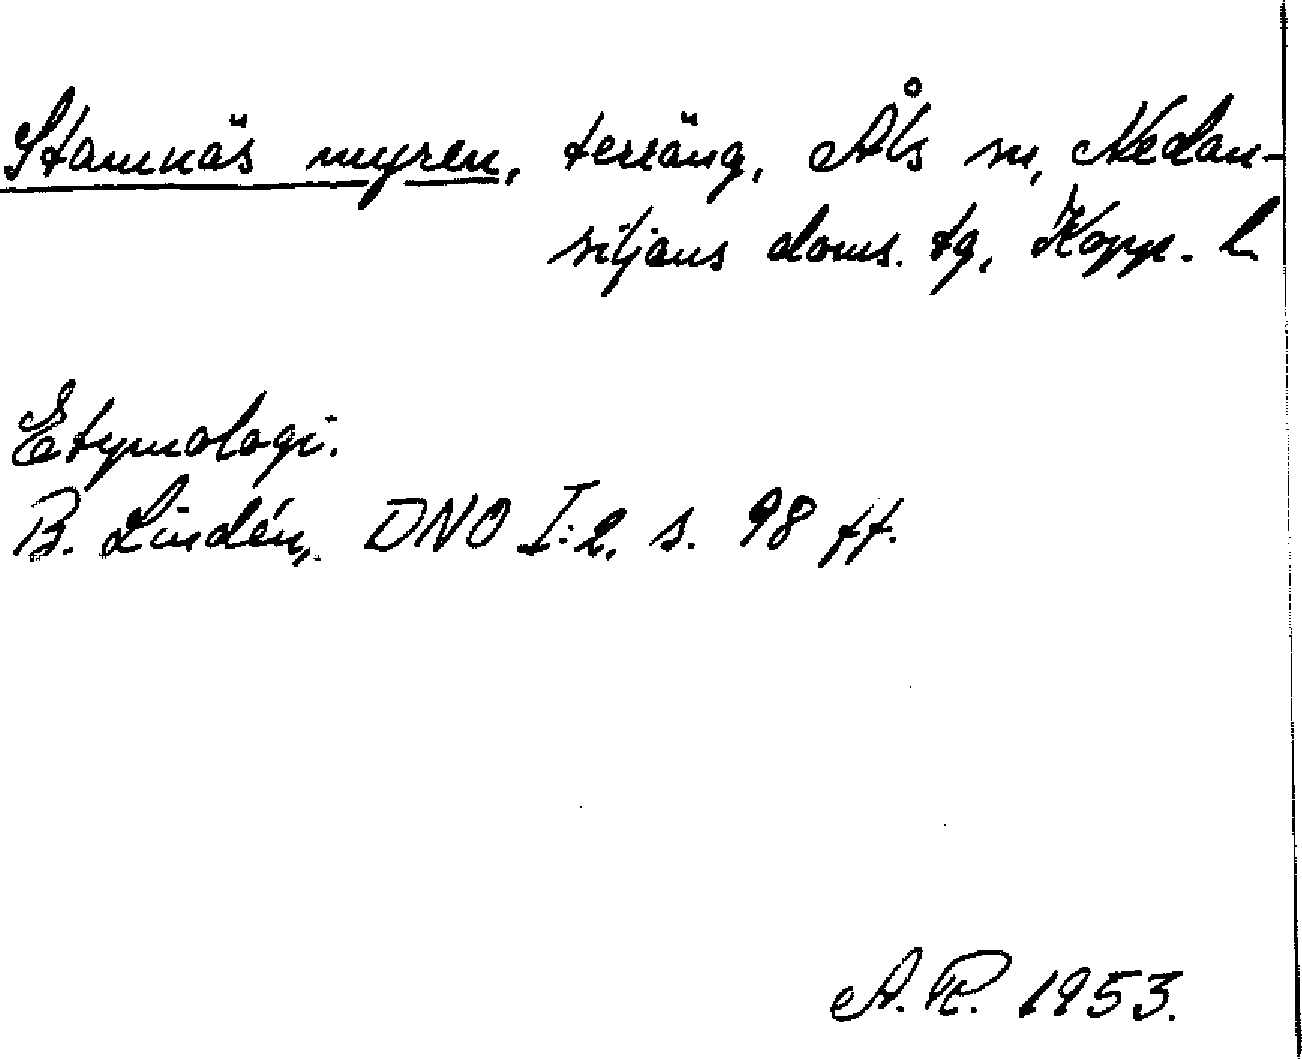 Stamnäs myren, terräng, Åls sn, Nedan-
siljans doms. tg, Kopp. l.
Etymologi.
B. Lindén, DNO I:2, s. 98 ff.
A. R. 1953.